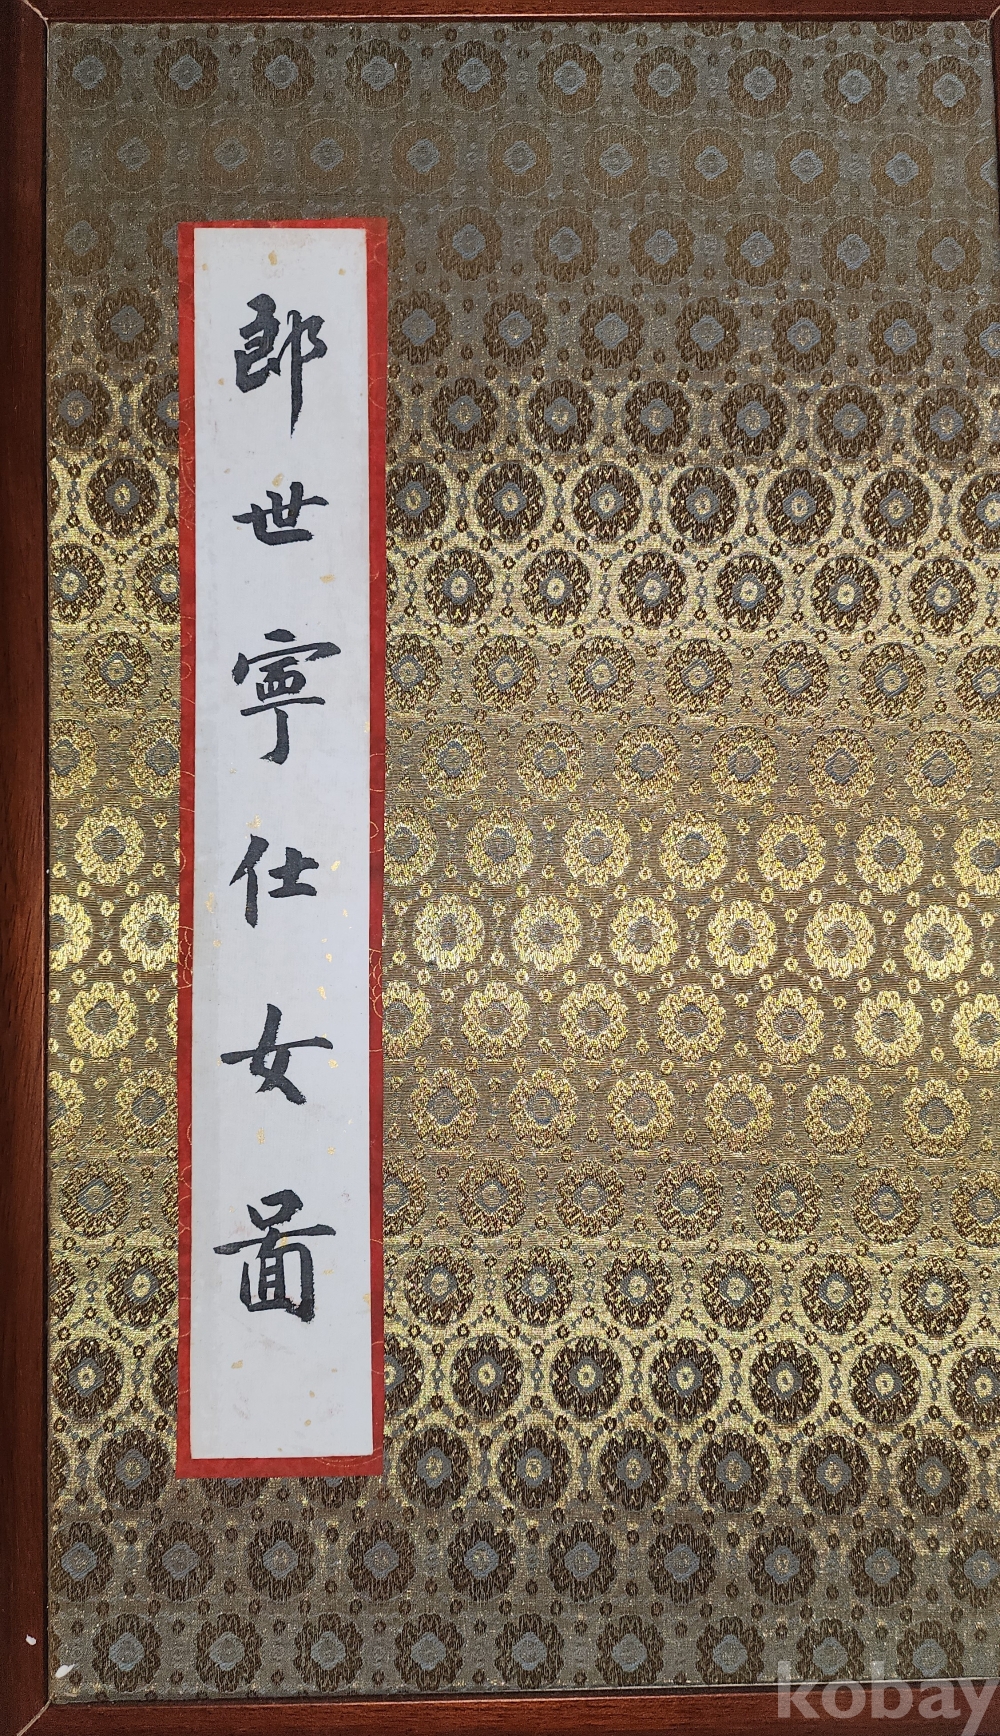 郎世寧仕女圖
kobay